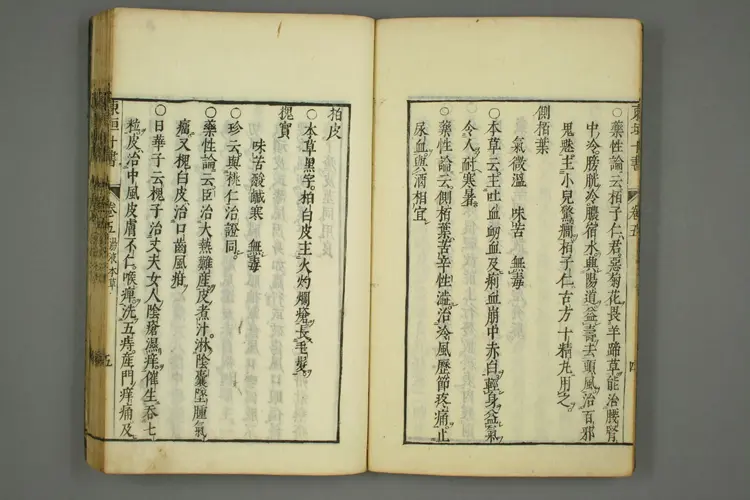 ○藥性論云栢子仁君惡菊花畏羊蹄草能治腰腎
中冷膀胱冷膿宿水興陽道益壽去頭風治百邪
鬼魅主小兒驚癇栢子仁古方十精丸用之
側栢葉
氣微溫 味苦 無毒
○本草云主吐血衂血及痢血崩中赤白輕身益氣
令人耐寒暑
○藥性論云側栢葉苦辛性澁治冷風歷節疼痛止
尿血與酒相宜
東垣十書 卷五 湯液本草 五
栢皮
○本草黑字栢白皮主火灼爛瘡長毛髮
槐實
味苦酸鹹寒 無毒
○珍云與桃仁治證同
○藥性論云臣治大熱難產皮煮汁淋陰囊墜腫氣
瘤又槐白皮治口齒風疳
○日華子云槐子治丈夫女人陰瘡濕痒催生吞七
粒皮治中風皮膚不仁喉痺洗五痔產門痒痛及